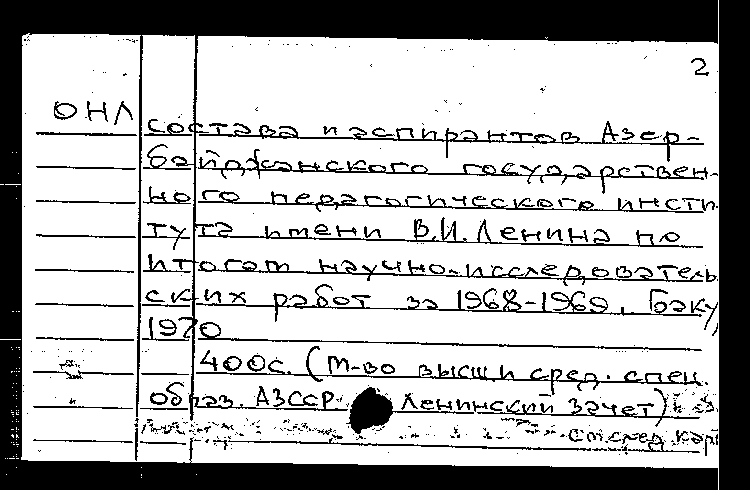 2
ОНЛ
состава и аспирантов Азер-
байджанского государствен-
ного педагогического инсти
тута имени В.И. Ленина по
итогам научно-исследователь
ских работ за 1968-1969. Баку,
1970
400с. (М-во высш и сред. спец.
образ. АЗССР. Ленинский зачет)
См след карт